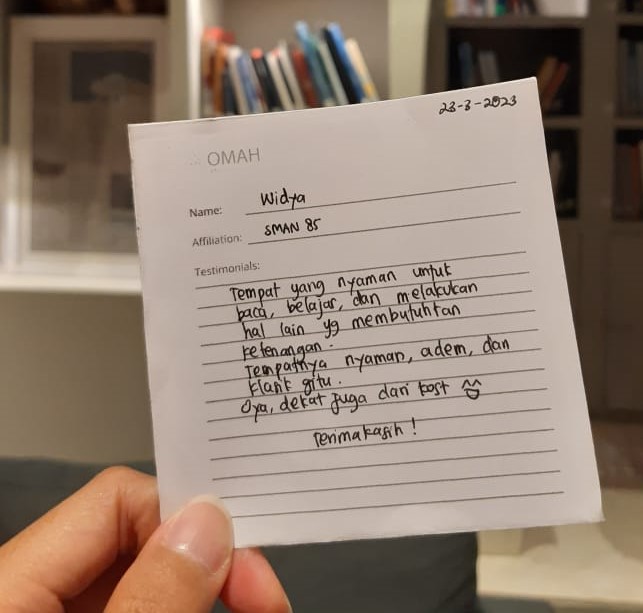 23-3-2023
OMAH
Name: Widya
Affiliation: SMAN 85
Testimonials:
Tempat yang nyaman untuk
baca, belajar, dan melakukan
hal lain yg membutuhkan
ketenangan.
Tempatnya nyaman, adem, dan
klasik gitu.
Oya, dekat juga dari kost
Terimakasih!